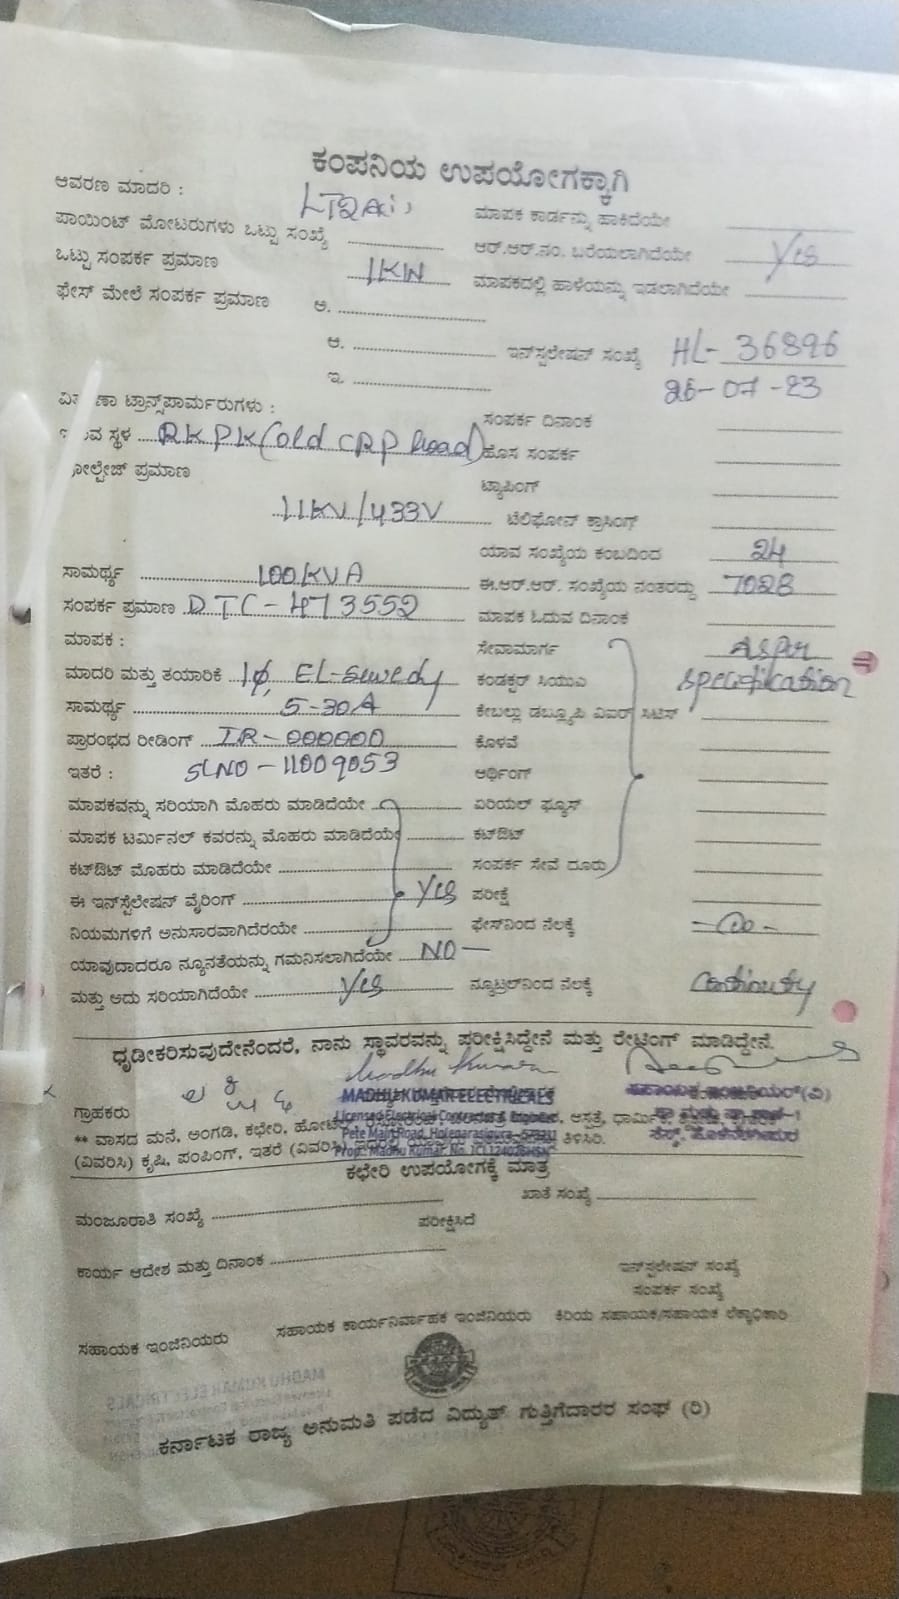 ಕಂಪನಿಯ ಉಪಯೋಗಕ್ಕಾಗಿ
ಆವರಣ ಮಾದರಿ : LT2Ai) ಮಾಪಕ ಕಾರ್ಡನ್ನು ಹಾಕಿದೆಯೇ
ಪಾಯಿಂಟ್ ಮೋಟರುಗಳು ಒಟ್ಟು ಸಂಖ್ಯೆ ಆರ್.ಆರ್.ನಂ. ಬರೆಯಲಾಗಿದೆಯೇ Yes
ಒಟ್ಟು ಸಂಪರ್ಕ ಪ್ರಮಾಣ 1KW ಮಾಪಕದಲ್ಲಿ ಹಾಳೆಯನ್ನು ಇಡಲಾಗಿದೆಯೇ
ಫೇಸ್ ಮೇಲೆ ಸಂಪರ್ಕ ಪ್ರಮಾಣ ಅ.
ಆ. ಇನ್‌ಸ್ಟಲೇಷನ್ ಸಂಖ್ಯೆ HL- 36896
ಇ. 26-07-23
ಟ್ರಾನ್ಸ್‌ಫಾರ್ಮರುಗಳು : ಸಂಪರ್ಕ ದಿನಾಂಕ
ಸ್ಥಳ RKPK (old CRP head) ಹೊಸ ಸಂಪರ್ಕ
ಪ್ರಮಾಣ ಟ್ಯಾಪಿಂಗ್
11KV/433V ಟೆಲಿಫೋನ್ ಕ್ರಾಸಿಂಗ್
ಯಾವ ಸಂಖ್ಯೆಯ ಕಂಬದಿಂದ 24
ಸಾಮರ್ಥ್ಯ 100KVA ಈ.ಆರ್.ಆರ್. ಸಂಖ್ಯೆಯ ನಂತರದ್ದು 7028
ಸಂಪರ್ಕ ಪ್ರಮಾಣ DTC-473552 ಮಾಪಕ ಓದುವ ದಿನಾಂಕ
ಮಾಪಕ : ಸೇವಾಮಾರ್ಗ As per
ಮಾದರಿ ಮತ್ತು ತಯಾರಿಕೆ 1ϕ, EL-Sewedy ಕಂಡಕ್ಟರ್ ಸಿಯುಎ specification
ಸಾಮರ್ಥ್ಯ 5-30A ಕೇಬಲ್ಲು ಡಬ್ಲ್ಯೂಪಿ ವಿಐಆರ್ ಸಿಟಿಸ್
ಪ್ರಾರಂಭದ ರೀಡಿಂಗ್ IR-000000 ಕೊಳವೆ
ಇತರೆ : SLNO-11009053 ಆರ್ಥಿಂಗ್
ಮಾಪಕವನ್ನು ಸರಿಯಾಗಿ ಮೊಹರು ಮಾಡಿದೆಯೇ ಏರಿಯಲ್ ಫ್ಯೂಸ್
ಮಾಪಕ ಟರ್ಮಿನಲ್ ಕವರನ್ನು ಮೊಹರು ಮಾಡಿದೆಯೇ ಕಟ್‌ಔಟ್
ಕಟ್‌ಔಟ್ ಮೊಹರು ಮಾಡಿದೆಯೇ ಸಂಪರ್ಕ ಸೇವೆ ದೂರು
ಈ ಇನ್‌ಸ್ಟೆಲೇಷನ್ ವೈರಿಂಗ್ Yes ಪರೀಕ್ಷೆ
ನಿಯಮಗಳಿಗೆ ಅನುಸಾರವಾಗಿದೆರಯೇ ಫೇಸ್‌ನಿಂದ ನೆಲಕ್ಕೆ
ಯಾವುದಾದರೂ ನ್ಯೂನತೆಯನ್ನು ಗಮನಿಸಲಾಗಿದೆಯೇ NO —
ಮತ್ತು ಅದು ಸರಿಯಾಗಿದೆಯೇ Yes ನ್ಯೂಟ್ರಲ್‌ನಿಂದ ನೆಲಕ್ಕೆ Continuty
ಧೃಡೀಕರಿಸುವುದೇನೆಂದರೆ, ನಾನು ಸ್ಥಾವರವನ್ನು ಪರೀಕ್ಷಿಸಿದ್ದೇನೆ ಮತ್ತು ರೇಟಿಂಗ್ ಮಾಡಿದ್ದೇನೆ.
Madhu Kumar
MADHU KUMAR ELECTRICALS ಸಹಾಯಕ ಇಂಜಿನಿಯರ್(ವಿ)
ಗ್ರಾಹಕರು Licensed Electrical Contractor
** ವಾಸದ ಮನೆ, ಅಂಗಡಿ, ಕಛೇರಿ, ಆಸ್ಪತ್ರೆ,
Pete Main Road, Holenarasipura
(ವಿವರಿಸಿ) ಕೃಷಿ, ಪಂಪಿಂಗ್, ಇತರೆ (ವಿವರಿಸಿ) ತಿಳಿಸಿರಿ.
Prop: Madhu Kumar. No.
ಕಛೇರಿ ಉಪಯೋಗಕ್ಕೆ ಮಾತ್ರ
ಮಂಜೂರಾತಿ ಸಂಖ್ಯೆ ಖಾತೆ ಸಂಖ್ಯೆ
ಪರೀಕ್ಷಿಸಿದೆ
ಕಾರ್ಯ ಆದೇಶ ಮತ್ತು ದಿನಾಂಕ ಇನ್‌ಸ್ಟಲೇಷನ್ ಸಂಖ್ಯೆ
ಸಂಪರ್ಕ ಸಂಖ್ಯೆ
ಸಹಾಯಕ ಇಂಜಿನಿಯರು ಸಹಾಯಕ ಕಾರ್ಯನಿರ್ವಾಹಕ ಇಂಜಿನಿಯರು ಕಿರಿಯ ಸಹಾಯಕ/ಸಹಾಯಕ ಲೆಕ್ಕಾಧಿಕಾರಿ
ಕರ್ನಾಟಕ ರಾಜ್ಯ ಅನುಮತಿ ಪಡೆದ ವಿದ್ಯುತ್ ಗುತ್ತಿಗೆದಾರರ ಸಂಘ (ರಿ)